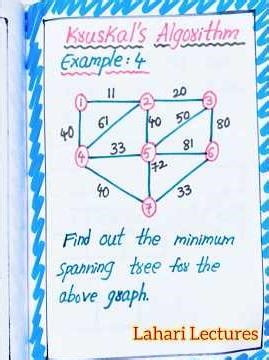 Kruskal's Algorithm
Example: 4
11 20
1 2 3
40 61 40 50 80
4 33 5 81 6
72
40 33
7
Find out the minimum
spanning tree for the
above graph.
Lahari Lectures